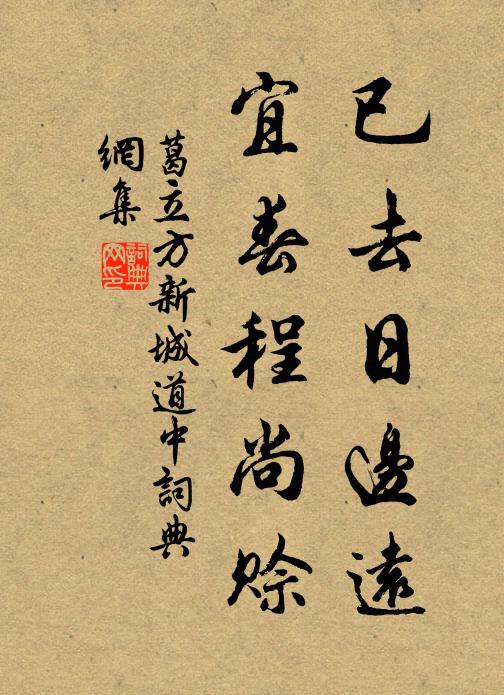 已去日邊遠
宜春程尚賒
葛立方新城道中詞典
網集
詞典
网印